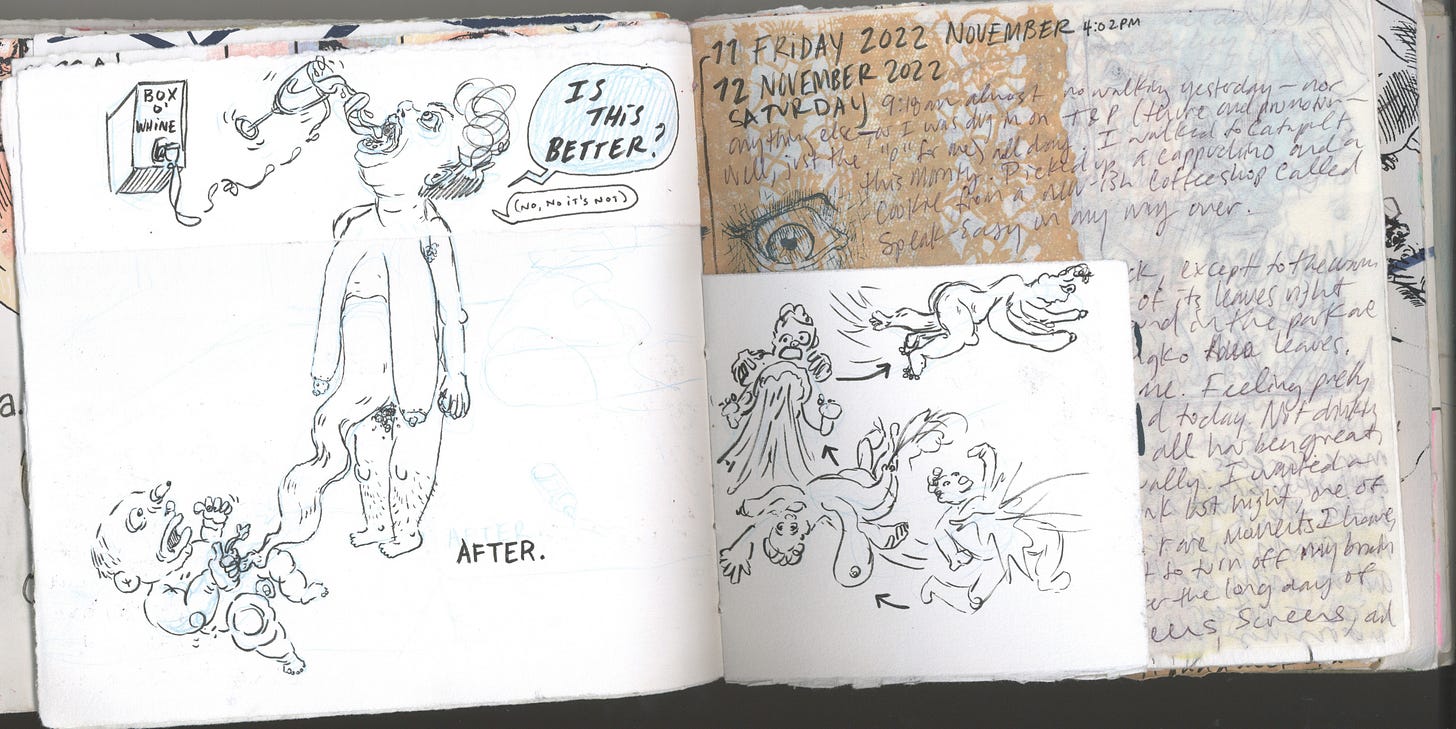 BOX
O'
WHINE
IS
THIS
BETTER?
(NO, NO IT'S NOT)
AFTER.
a.
11 FRIDAY 2022 NOVEMBER 4:02PM
12 NOVEMBER 2022
SATURDAY 9:18am almost no walking yesterday – nor
anything else – as I was on T&P (there and
well, just the "p" for me) all day. I walked to Catapult
this morning. Picked up a cappuccino and a
cookie from a new-ish coffeeshop called
Speak easy on my way over.
except to the
of its leaves right
and in the park are
leaves.
me. Feeling pretty
d today. Not drinking
all has been great,
ally. I wanted a
nk last night, one of
rare moments I have
t to turn off my brain
er the long day of
eens, screens, and